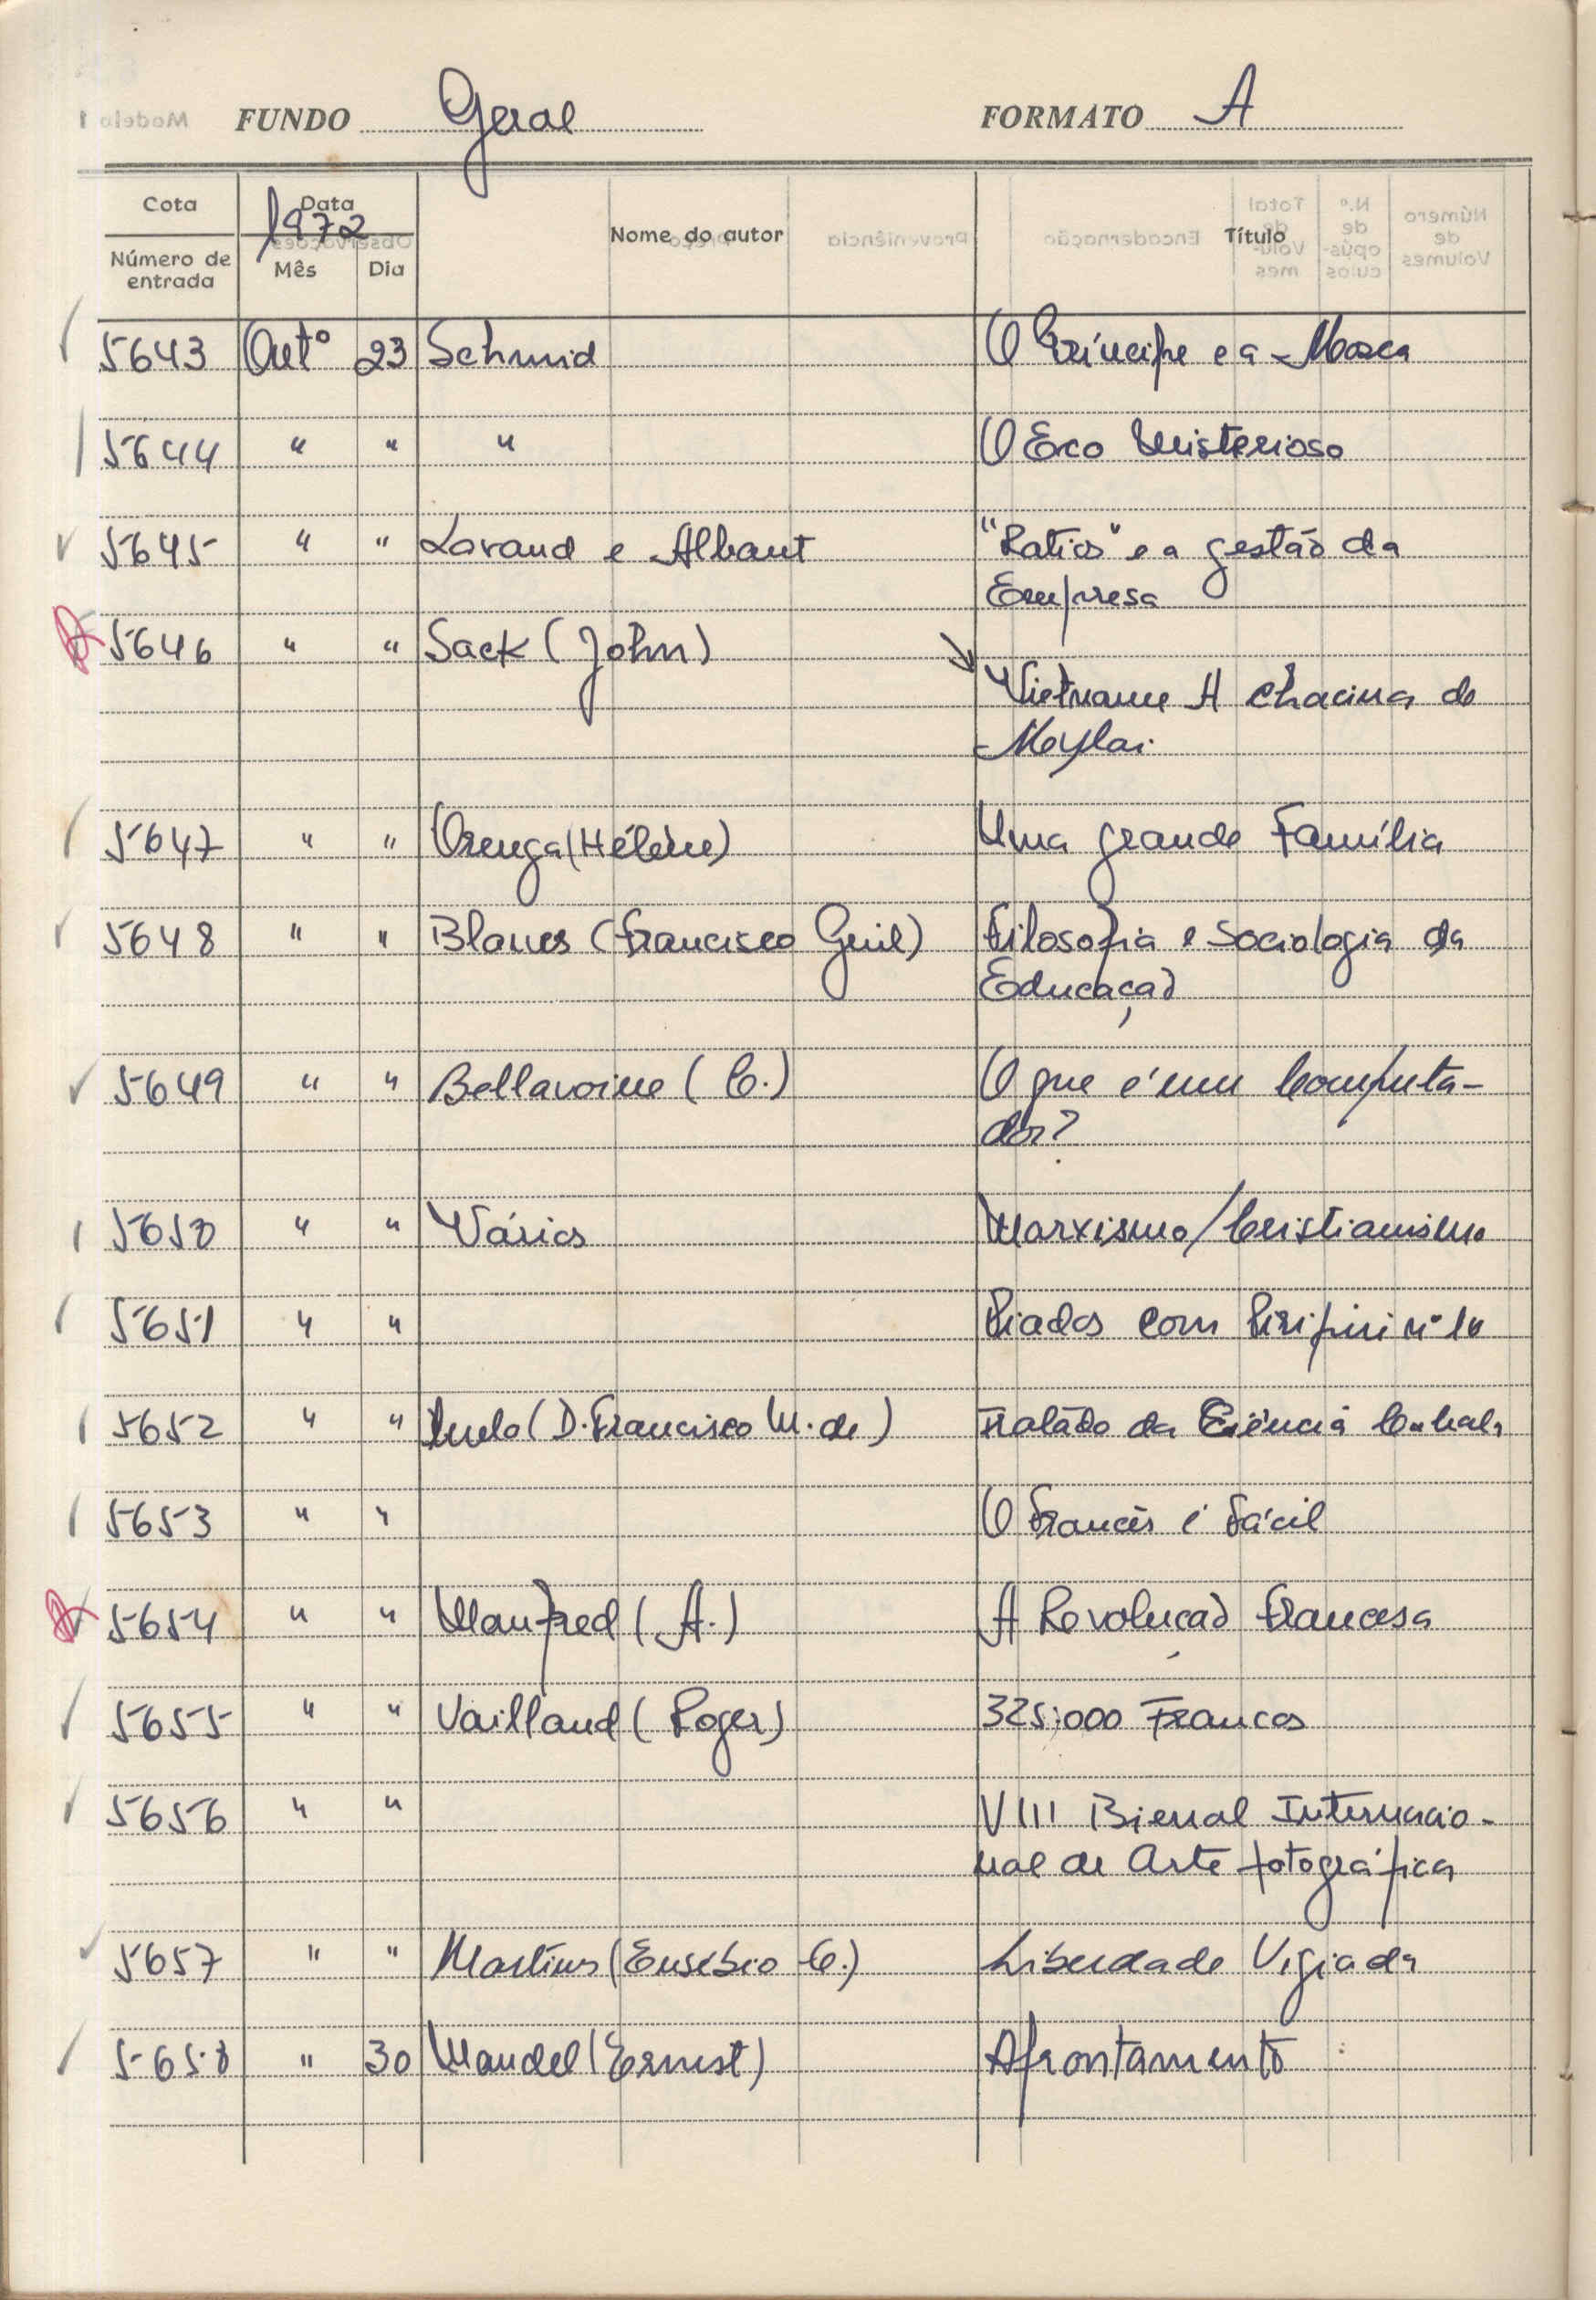 FUNDO Geral FORMATO A
Cota Data Nome do autor Título
1972
Número de entrada Mês Dia
5643 Outº 23 Schmid O Príncipe e a Mosca
5644 " " " O Eco Misterioso
5645 " " Lavaud e Albaut "Ratios" e a gestão da
Empresa
5646 " " Sack (John)
Vietname A chacina de
Mylai.
5647 " " Orenga (Hélène) Uma grande Família
5648 " " Blanes (Francisco Guil) Filosofia e Sociologia da
Educação
5649 " " Bellavoine (C.) O que é um Computa-
dor?
5650 " " Vários Marxismo/Cristianismo
5651 " " Piadas com Piripiri nº
5652 " " Melo (D. Francisco M. de) Tratado da Ciência Cabala
5653 " " O Francês é Fácil
5654 " " Manfred (A.) A Revolução Francesa
5655 " " Vailland (Roger) 325.000 Francos
5656 " " VIII Bienal Internacio-
nal de Arte fotográfica
5657 " " Martins (Eusébio C.) Liberdade Vigiada
5658 " 30 Mandel (Ernest) Afrontamento